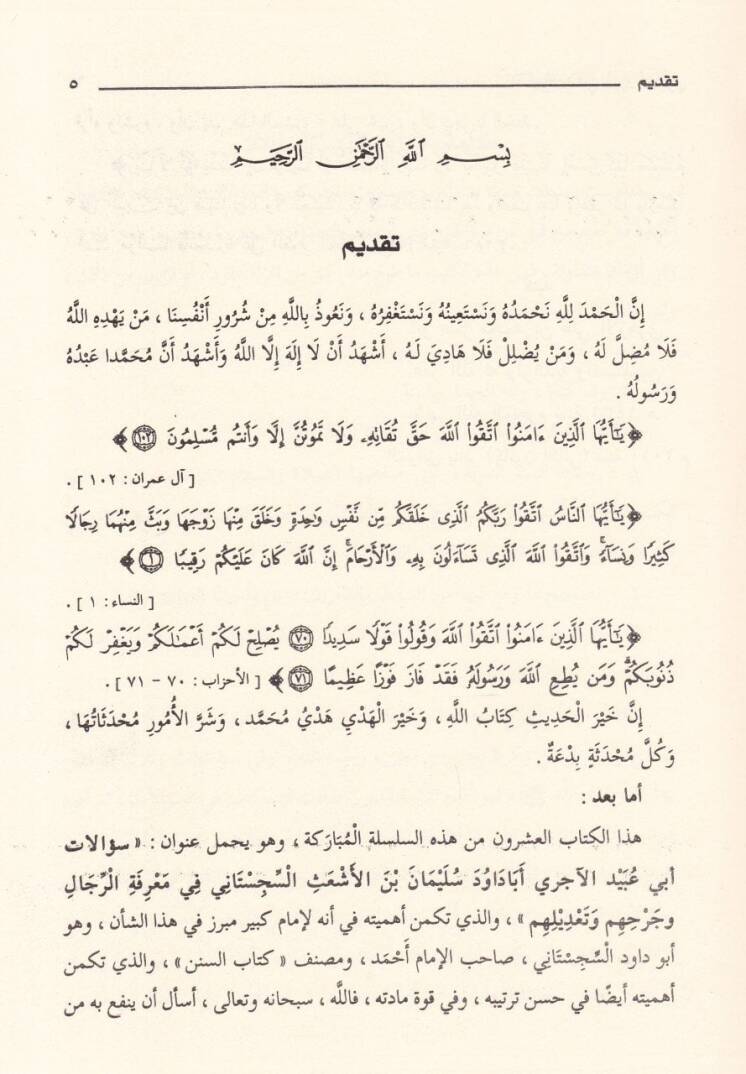 تقديم ٥
بِسْمِ اللهِ الرَّحْمَٰنِ الرَّحِيمِ
تقديم
إِنَّ الْحَمْدَ لِلَّهِ نَحْمَدُهُ وَنَسْتَعِينُهُ وَنَسْتَغْفِرُهُ ، وَنَعُوذُ بِاللَّهِ مِنْ شُرُورِ أَنْفُسِنَا ، مَنْ يَهْدِهِ اللَّهُ
فَلَا مُضِلَّ لَهُ ، وَمَنْ يُضْلِلْ فَلَا هَادِيَ لَهُ ، أَشْهَدُ أَنْ لَا إِلَهَ إِلَّا اللَّهُ وَأَشْهَدُ أَنَّ مُحَمَّدا عَبْدُهُ
وَرَسُولُهُ .
﴿ يَٰٓأَيُّهَا ٱلَّذِينَ ءَامَنُوا۟ ٱتَّقُوا۟ ٱللَّهَ حَقَّ تُقَاتِهِۦ وَلَا تَمُوتُنَّ إِلَّا وَأَنتُم مُّسْلِمُونَ ١٠٢ ﴾
[ آل عمران : ١٠٢ ] .
﴿ يَٰٓأَيُّهَا ٱلنَّاسُ ٱتَّقُوا۟ رَبَّكُمُ ٱلَّذِى خَلَقَكُم مِّن نَّفْسٍ وَٰحِدَةٍ وَخَلَقَ مِنْهَا زَوْجَهَا وَبَثَّ مِنْهُمَا رِجَالًا
كَثِيرًا وَنِسَآءً ۚ وَٱتَّقُوا۟ ٱللَّهَ ٱلَّذِى تَسَآءَلُونَ بِهِۦ وَٱلْأَرْحَامَ ۚ إِنَّ ٱللَّهَ كَانَ عَلَيْكُمْ رَقِيبًا ١ ﴾
[ النساء : ١ ] .
﴿ يَٰٓأَيُّهَا ٱلَّذِينَ ءَامَنُوا۟ ٱتَّقُوا۟ ٱللَّهَ وَقُولُوا۟ قَوْلًا سَدِيدًا ٧٠ يُصْلِحْ لَكُمْ أَعْمَٰلَكُمْ وَيَغْفِرْ لَكُمْ
ذُنُوبَكُمْ ۗ وَمَن يُطِعِ ٱللَّهَ وَرَسُولَهُۥ فَقَدْ فَازَ فَوْزًا عَظِيمًا ٧١ ﴾ [ الأحزاب : ٧٠ – ٧١ ] .
إِنَّ خَيْرَ الْحَدِيثِ كِتَابُ اللَّهِ ، وَخَيْرَ الْهَدْيِ هَدْيُ مُحَمَّد ، وَشَرَّ الأُمُورِ مُحْدَثَاتُهَا ،
وَكُلَّ مُحْدَثَةٍ بِدْعَةٌ .
أما بعد :
هذا الكتاب العشرون من هذه السلسلة الْمُبَارَكة ، وهو يحمل عنوان : « سؤالات
أبي عُبَيْد الآجري أَبَادَاوُدَ سُلَيْمَانَ بْنَ الأَشْعَثِ السِّجِسْتَاني فِي مَعْرِفَةِ الرِّجَالِ
وجَرْحِهِم وَتَعْدِيلِهِم » ، والذي تكمن أهميته في أنه لإمام كبير مبرز في هذا الشأن ، وهو
أبو داود السِّجِسْتَانِي ، صاحب الإمام أَحْمَد ، ومصنف « كتاب السنن » ، والذي تكمن
أهميته أيضًا في حسن ترتيبه ، وفي قوة مادته ، فاللَّه ، سبحانه وتعالى ، أسأل أن ينفع به من